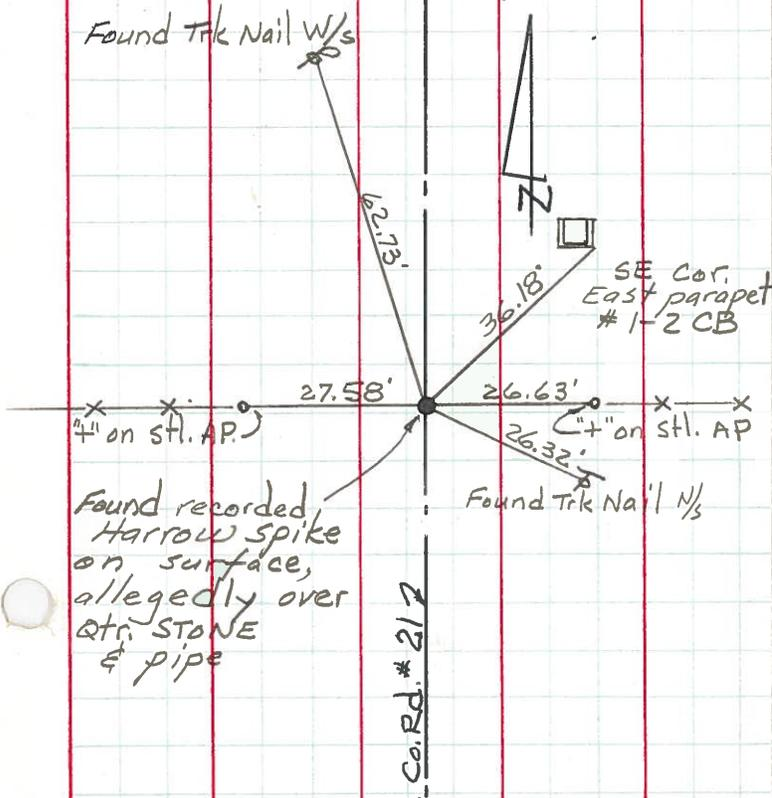 Found Trk Nail W/s
N
62.73'
36.18'
SE Cor.
East parapet
# 1-2 CB
27.58'
26.63'
"+" on Stl. AP.
"+" on Stl. AP
26.32'
Found Trk Nail N/s
Found recorded
Harrow spike
on surface,
allegedly over
Qtr. STONE
& pipe
Co. Rd. # 21